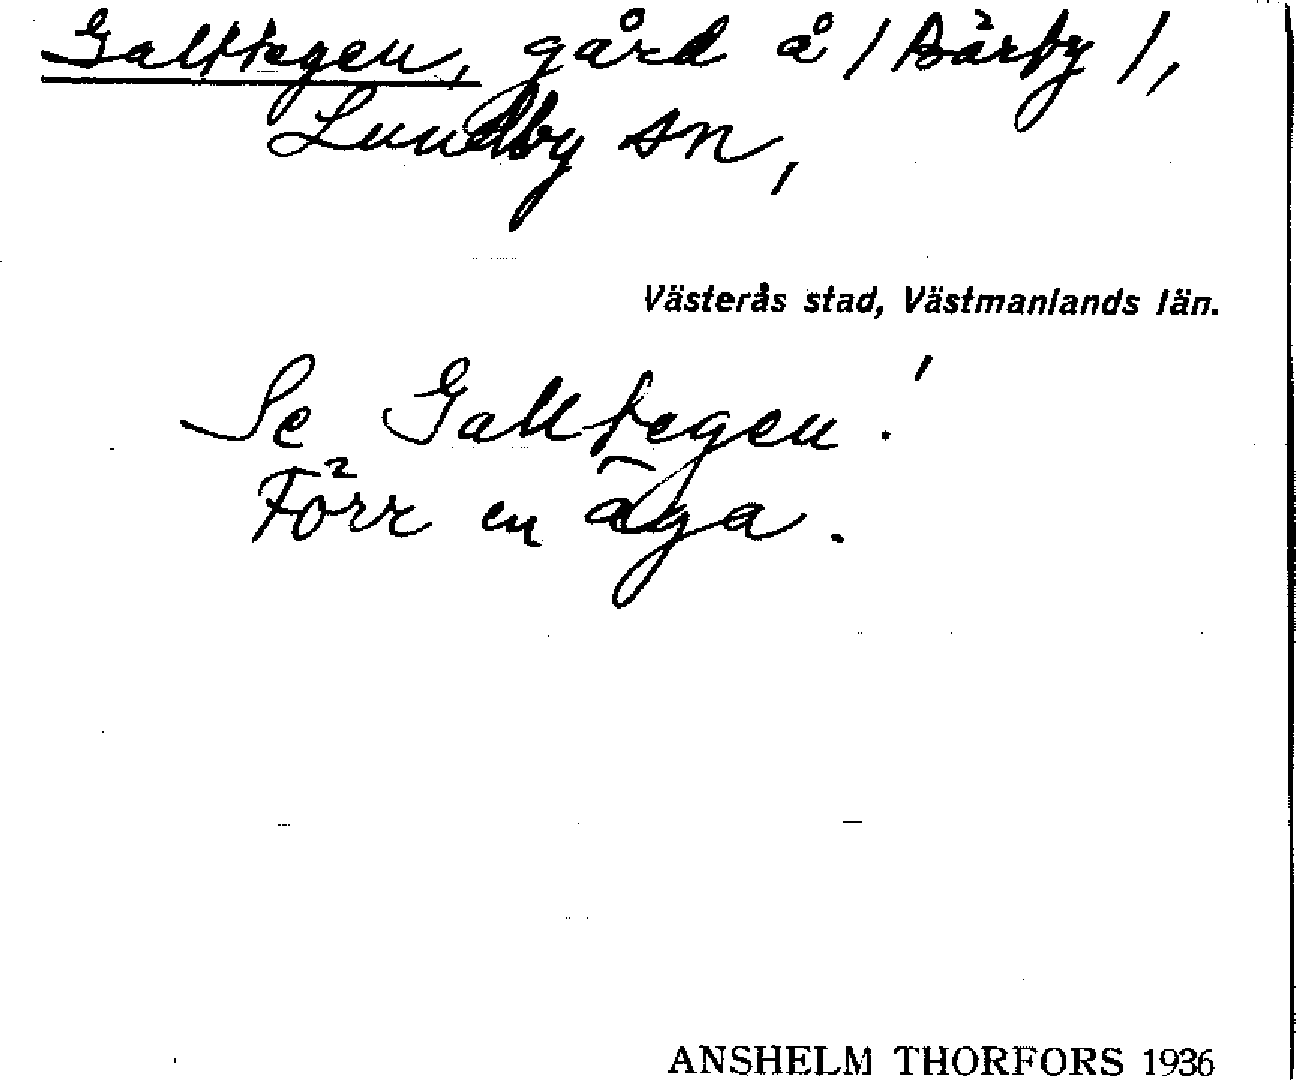 Galttegen, gård å /Bärby/,
Lundby sn,
Västerås stad, Västmanlands län.
Se Galltegen!
Förr en äga.
ANSHELM THORFORS 1936